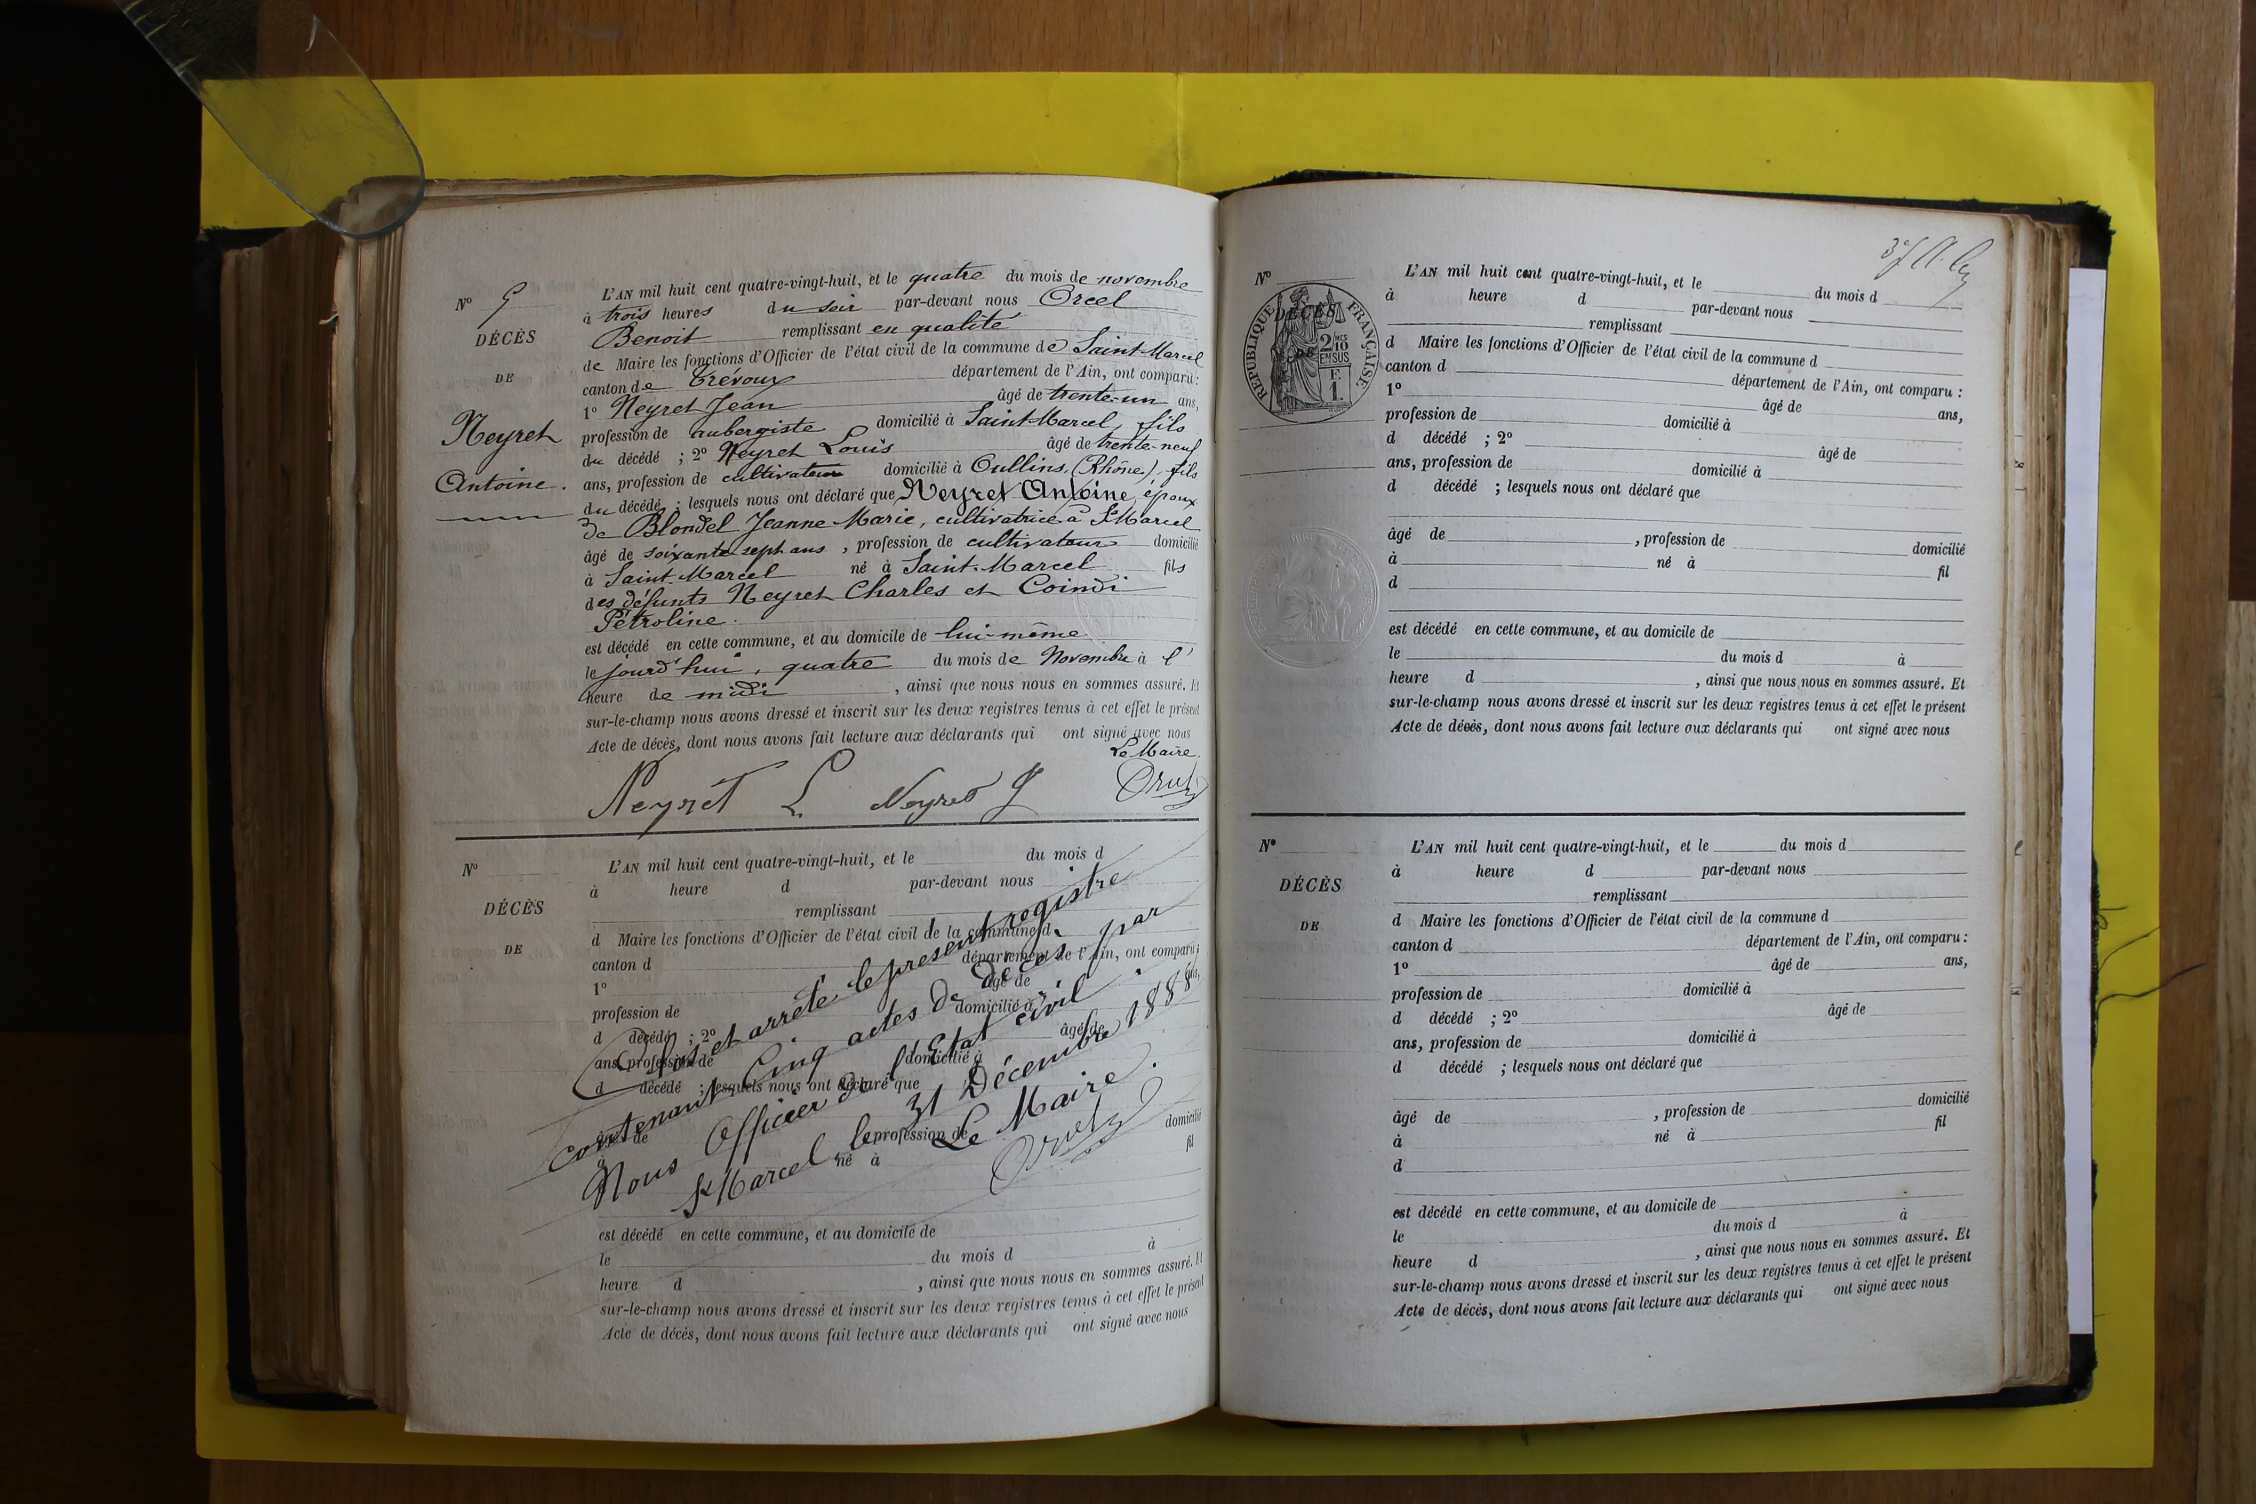 N° 5
DÉCÈS
DE
Neyret
Antoine.
L'AN mil huit cent quatre-vingt-huit, et le quatre du mois de novembre
à trois heures du soir par-devant nous Orcel
Benoit remplissant en qualité
de Maire les fonctions d'Officier de l'état civil de la commune de Saint-Marcel
canton de Trévoux département de l'Ain, ont comparu :
1° Neyret Jean âgé de trente-un ans,
profession de aubergiste domicilié à Saint-Marcel, fils
du décédé ; 2° Neyret Louis âgé de trente-neuf
ans, profession de cultivateur domicilié à Oullins, (Rhône) fils
du décédé ; lesquels nous ont déclaré que Neyret Antoine, époux
de Blondel Jeanne Marie, cultivatrice à St Marcel
âgé de soixante sept ans, profession de cultivateur domicilié
à Saint-Marcel né à Saint-Marcel fils
des défunts Neyret Charles et Coindi
Pétroline.
est décédé en cette commune, et au domicile de lui-même
le jourd'hui, quatre du mois de Novembre à l'
heure de midi, ainsi que nous nous en sommes assuré. Et
sur-le-champ nous avons dressé et inscrit sur les deux registres tenus à cet effet le présent
Acte de décès, dont nous avons fait lecture aux déclarants qui ont signé avec nous
Le Maire.
Neyret L. Neyret J
N°
DÉCÈS
DE
L'AN mil huit cent quatre-vingt-huit, et le du mois d
à heure d par-devant nous
remplissant
d Maire les fonctions d'Officier de l'état civil de la commune d
canton d département de l'Ain, ont comparu :
1° âgé de ans,
profession de domicilié à
d décédé ; 2° âgé de
ans, profession de domicilié à
d décédé ; lesquels nous ont déclaré que
âgé de profession de domicilié
à né à fil
est décédé en cette commune, et au domicile de
le du mois d à
heure d , ainsi que nous nous en sommes assuré. Et
sur-le-champ nous avons dressé et inscrit sur les deux registres tenus à cet effet le présent
Acte de décès, dont nous avons fait lecture aux déclarants qui ont signé avec nous
Clos et arrêté le présent registre
contenant Cinq actes de décès par
Nous Officier de l'Etat civil.
St Marcel, le 31 Décembre 1888
Le Maire.
N°
RÉPUBLIQUE FRANÇAISE
2/10 EN SUS
F. 1.
DÉCÈS
DE
L'AN mil huit cent quatre-vingt-huit, et le du mois d
à heure d par-devant nous
remplissant
d Maire les fonctions d'Officier de l'état civil de la commune d
canton d département de l'Ain, ont comparu :
1° âgé de ans,
profession de domicilié à
d décédé ; 2° âgé de
ans, profession de domicilié à
d décédé ; lesquels nous ont déclaré que
âgé de , profession de domicilié
à né à fil
d
est décédé en cette commune, et au domicile de
le du mois d à
heure d , ainsi que nous nous en sommes assuré. Et
sur-le-champ nous avons dressé et inscrit sur les deux registres tenus à cet effet le présent
Acte de décès, dont nous avons fait lecture aux déclarants qui ont signé avec nous
N°
DÉCÈS
DE
L'AN mil huit cent quatre-vingt-huit, et le du mois d
à heure d par-devant nous
remplissant
d Maire les fonctions d'Officier de l'état civil de la commune d
canton d département de l'Ain, ont comparu :
1° âgé de ans,
profession de domicilié à
d décédé ; 2° âgé de
ans, profession de domicilié à
d décédé ; lesquels nous ont déclaré que
âgé de , profession de domicilié
à né à fil
d
est décédé en cette commune, et au domicile de
le du mois d à
heure d , ainsi que nous nous en sommes assuré. Et
sur-le-champ nous avons dressé et inscrit sur les deux registres tenus à cet effet le présent
Acte de décès, dont nous avons fait lecture aux déclarants qui ont signé avec nous